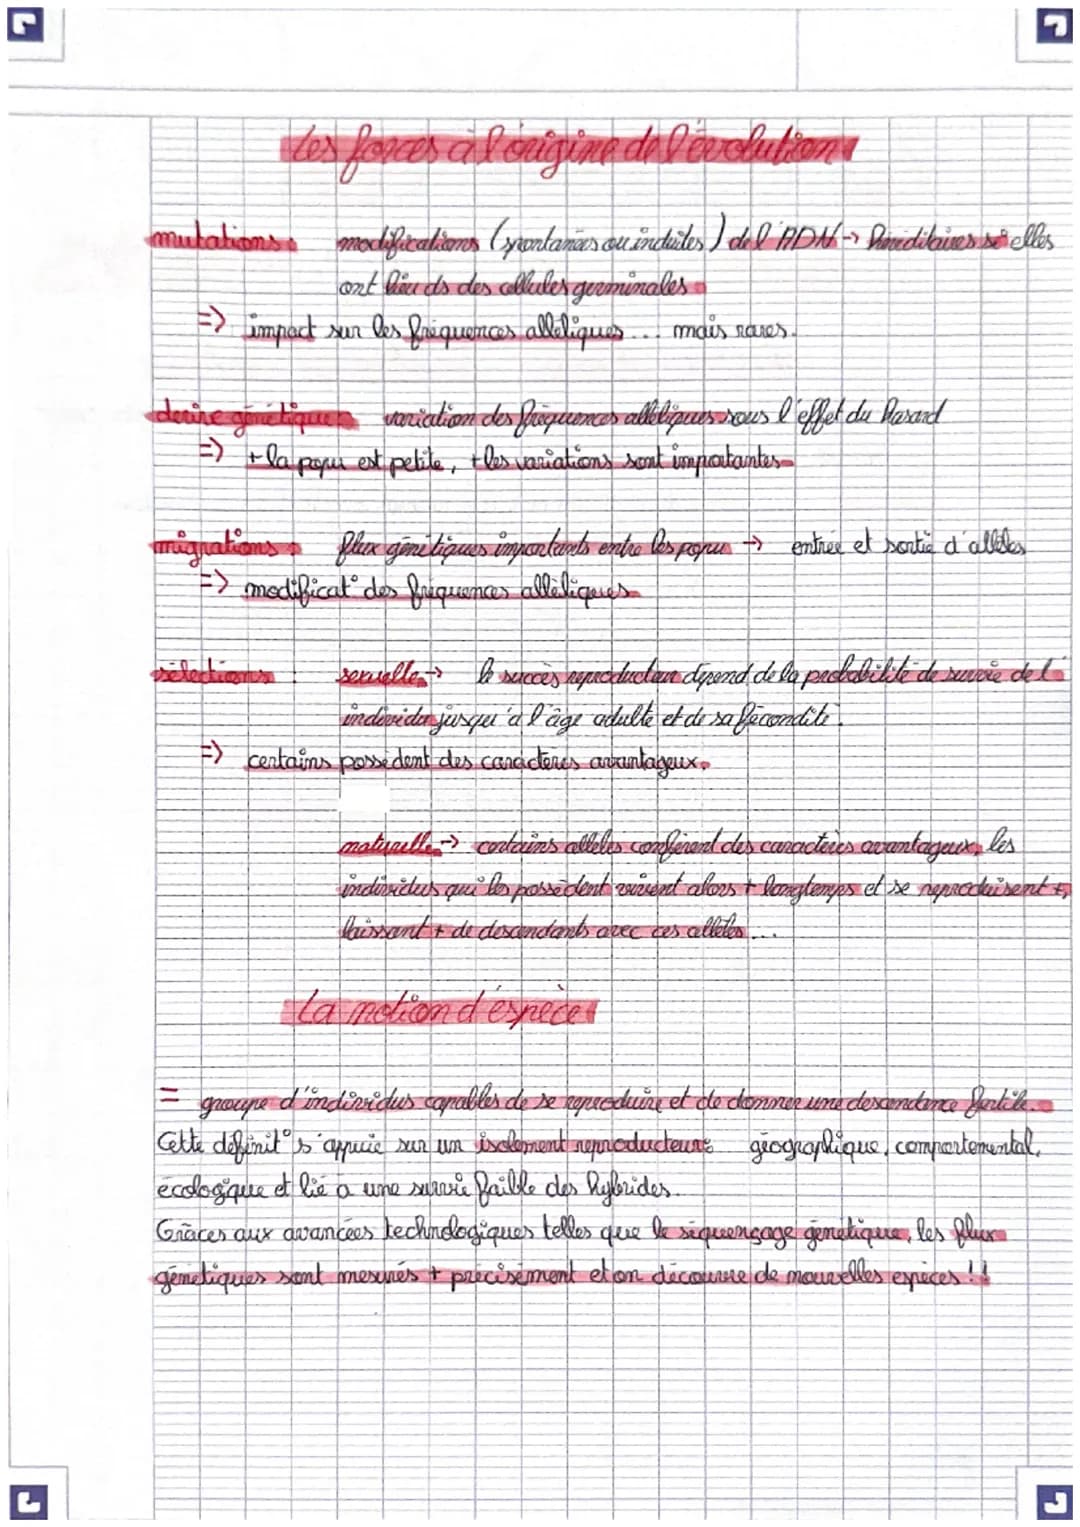 Les forces à l'origine de l'évolution
mutations : modifications (spontanées ou induites) de l'ADN -> héréditaires si elles
ont lieu ds des cellules germinales
=> impact sur les fréquences alléliques... mais rares.
dérive génétique : variation des fréquences alléliques sous l'effet du hasard
=> + la popu est petite, + les variations sont importantes
migrations : flux génétiques importants entre les popu -> entrée et sortie d'allèles
=> modificat° des fréquences alléliques
sélections : sexuelle -> le succès reproducteur dépend de la probabilité de survie de l'
individu jusqu'à l'âge adulte et de sa fécondité.
=> certains possèdent des caractères avantageux.
naturelle -> certains allèles confèrent des caractères avantageux, les
individus qui les possèdent vivent alors + longtemps et se reproduisent +,
laissant + de descendants avec ces allèles...
La notion d'espèce
= groupe d'individus capables de se reproduire et de donner une descendance fertile.
Cette définit° s'appuie sur un isolement reproducteur : géographique, comportemental,
écologique et lié à une survie faible des hybrides.
Grâces aux avancées technologiques telles que le séquençage génétique, les flux
génétiques sont mesurés + précisément et on découvre de nouvelles espèces !!